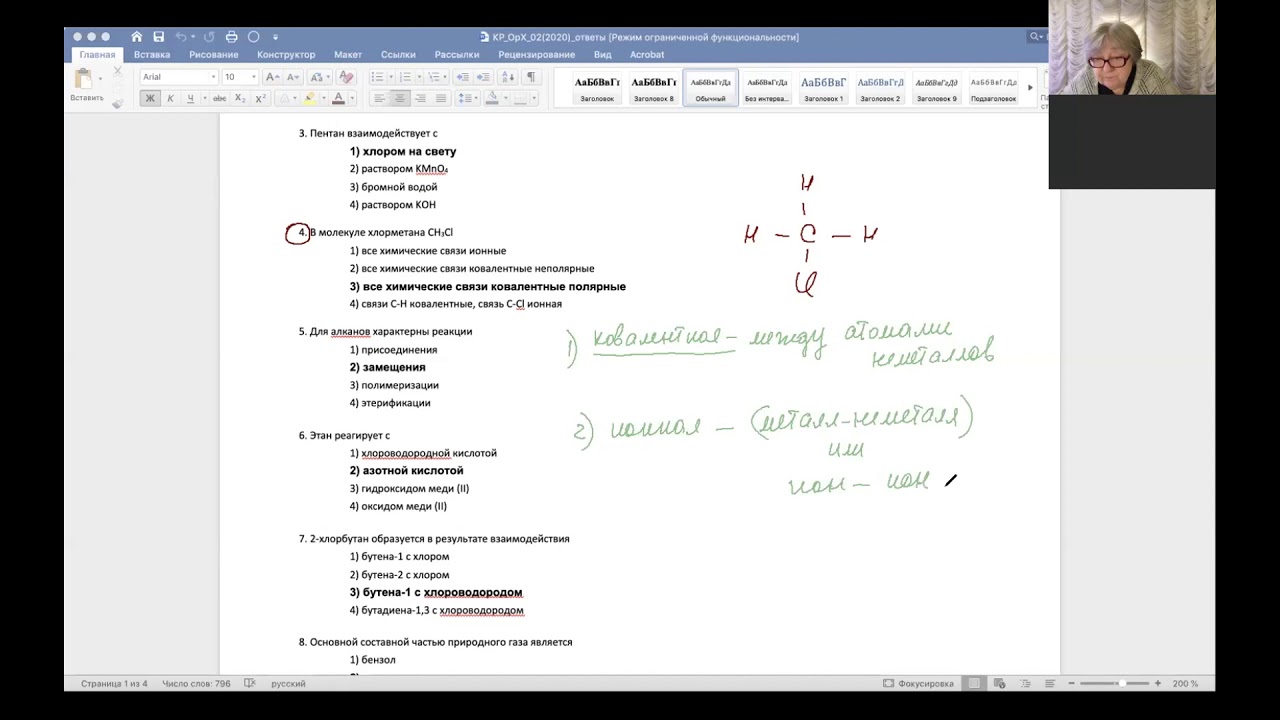 KP_OpX_02(2020)_ответы [Режим ограниченной функциональности]
Главная Вставка Рисование Конструктор Макет Ссылки Рассылки Рецензирование Вид Acrobat
Вставить
Arial 10
Ж К Ч abc X₂ X²
АаБбВвГг АаБбВвГг АаБбВвГгДд АаБбВвГгДд АаБбВвГ АаБбВвГгД АаБбВвГгДд АаБбВвГгДд
Заголовок Заголовок 8 Обычный Без интерва... Заголовок 1 Заголовок 2 Заголовок 9 Подзаголовок
3. Пентан взаимодействует с
1) хлором на свету
2) раствором KMnO₄
3) бромной водой
4) раствором KOH
4. В молекуле хлорметана CH₃Cl
1) все химические связи ионные
2) все химические связи ковалентные неполярные
3) все химические связи ковалентные полярные
4) связи С-Н ковалентные, связь C-Cl ионная
5. Для алканов характерны реакции
1) присоединения
2) замещения
3) полимеризации
4) этерификации
6. Этан реагирует с
1) хлороводородной кислотой
2) азотной кислотой
3) гидроксидом меди (II)
4) оксидом меди (II)
7. 2-хлорбутан образуется в результате взаимодействия
1) бутена-1 с хлором
2) бутена-2 с хлором
3) бутена-1 с хлороводородом
4) бутадиена-1,3 с хлороводородом
8. Основной составной частью природного газа является
1) бензол
H
H – C – H
Cl
1) ковалентная – между атомами
неметаллов
2) ионная – (металл-неметалл)
или
ион – ион
Страница 1 из 4 Число слов: 796 русский Фокусировка 200 %